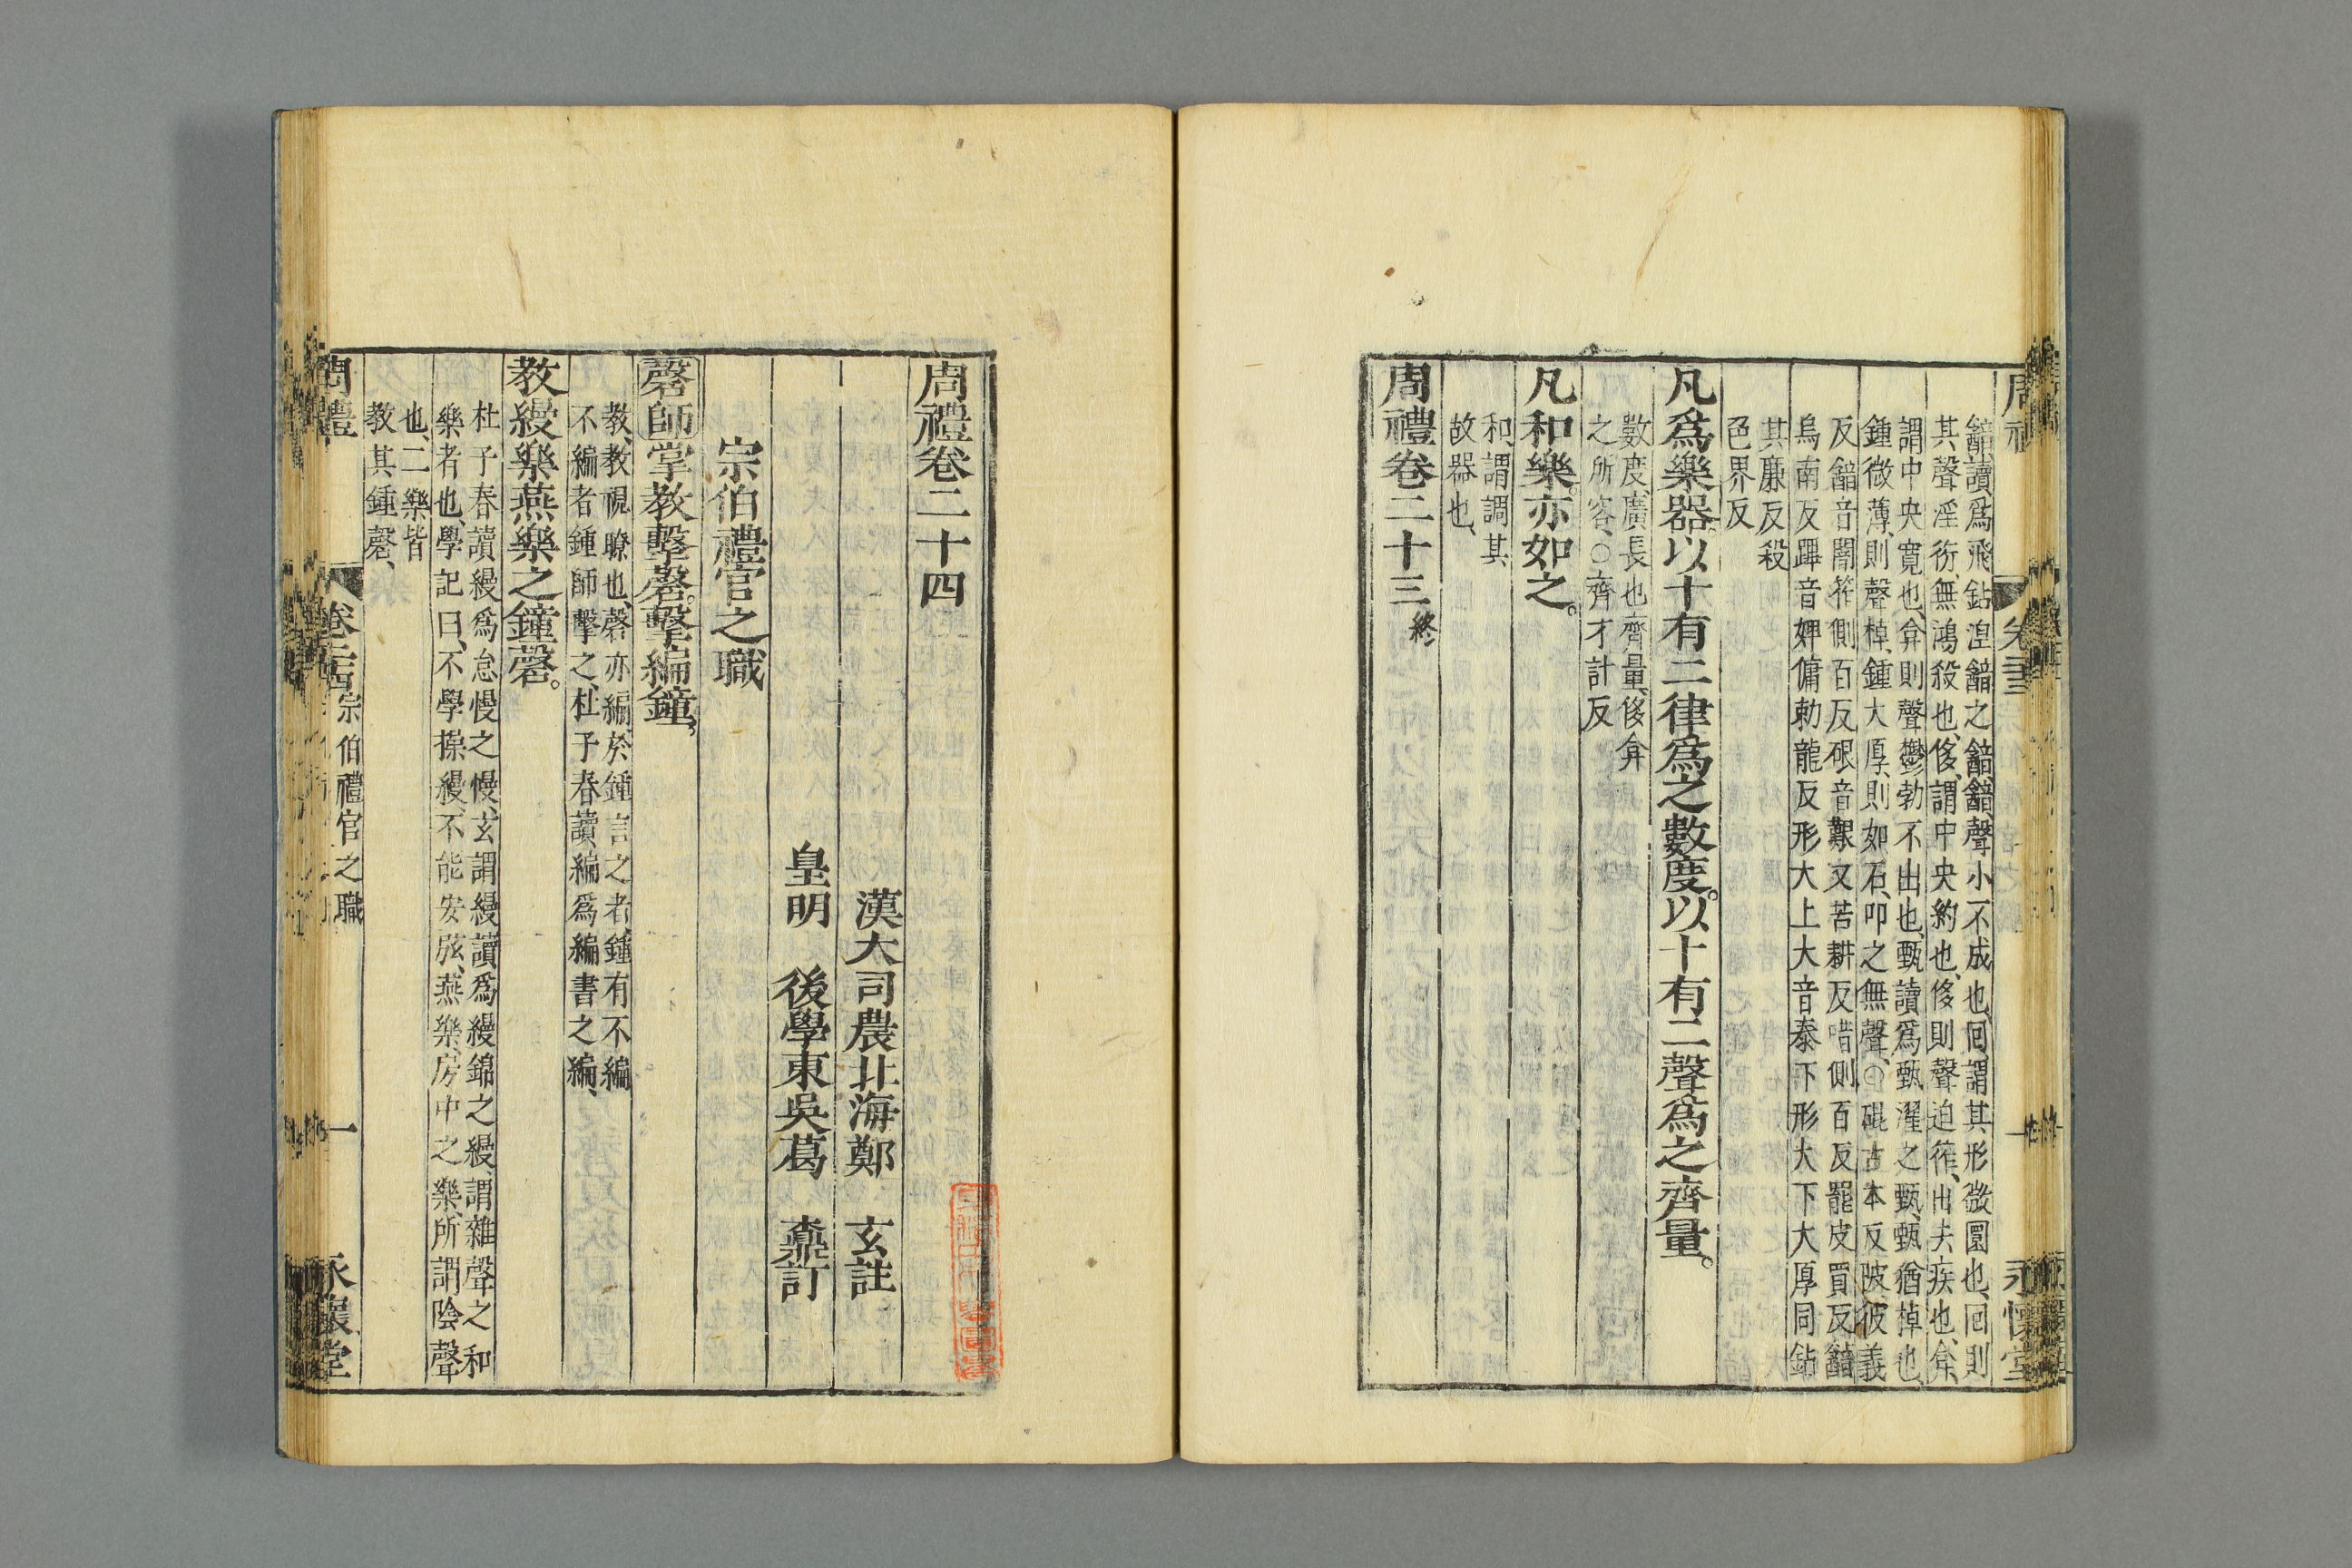 韽讀爲飛鉆涅韽之韽韽聲小不成也回謂其形微圜也回則
其聲淫衍無鴻殺也侈謂中央約也侈則聲迫筰出去疾也弇
謂中央寛也弇則聲鬱勃不出也甄讀爲甄濯之甄甄猶掉也
鍾微薄則聲掉鍾大厚則如石叩之無聲○硍古本反陂彼義
反韽音闇筰側百反硍音艱又苦耕反唶側百反罷皮買反韽
烏南反踕音婢傭勅龍反形大上大音泰下形大下大厚同鉆
其廉反殺
色界反
凡爲樂器。以十有二律爲之數度。以十有二聲爲之齊量。
數度、廣長也齊量、侈弇
之所容、○齊才計反
凡和樂。亦如之。
和謂調其
故器也、
周禮卷二十三終
周禮 卷二十三 永懷堂
周禮卷二十四
漢大司農北海鄭 玄註
皇明 後學東吳葛 鼒訂
宗伯禮官之職
磬師掌教擊磬。擊編鐘。
教、教視瞭也、磬亦編、於鍾言之者、鍾有不編
不編者鍾師擊之、杜子春讀編爲編書之編、
教縵樂燕樂之鐘磬。
杜子春讀縵爲怠慢之慢、玄謂縵讀爲縵錦之縵、謂雜聲之和
樂者也、學記曰、不學操縵、不能安弦、燕樂、房中之樂、所謂陰聲
也、二樂皆
教其鍾磬、
周禮 卷二十四 宗伯禮官之職 一 永懷堂